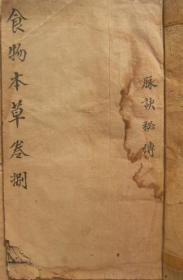 食物本草卷捌
脉訣秘傳